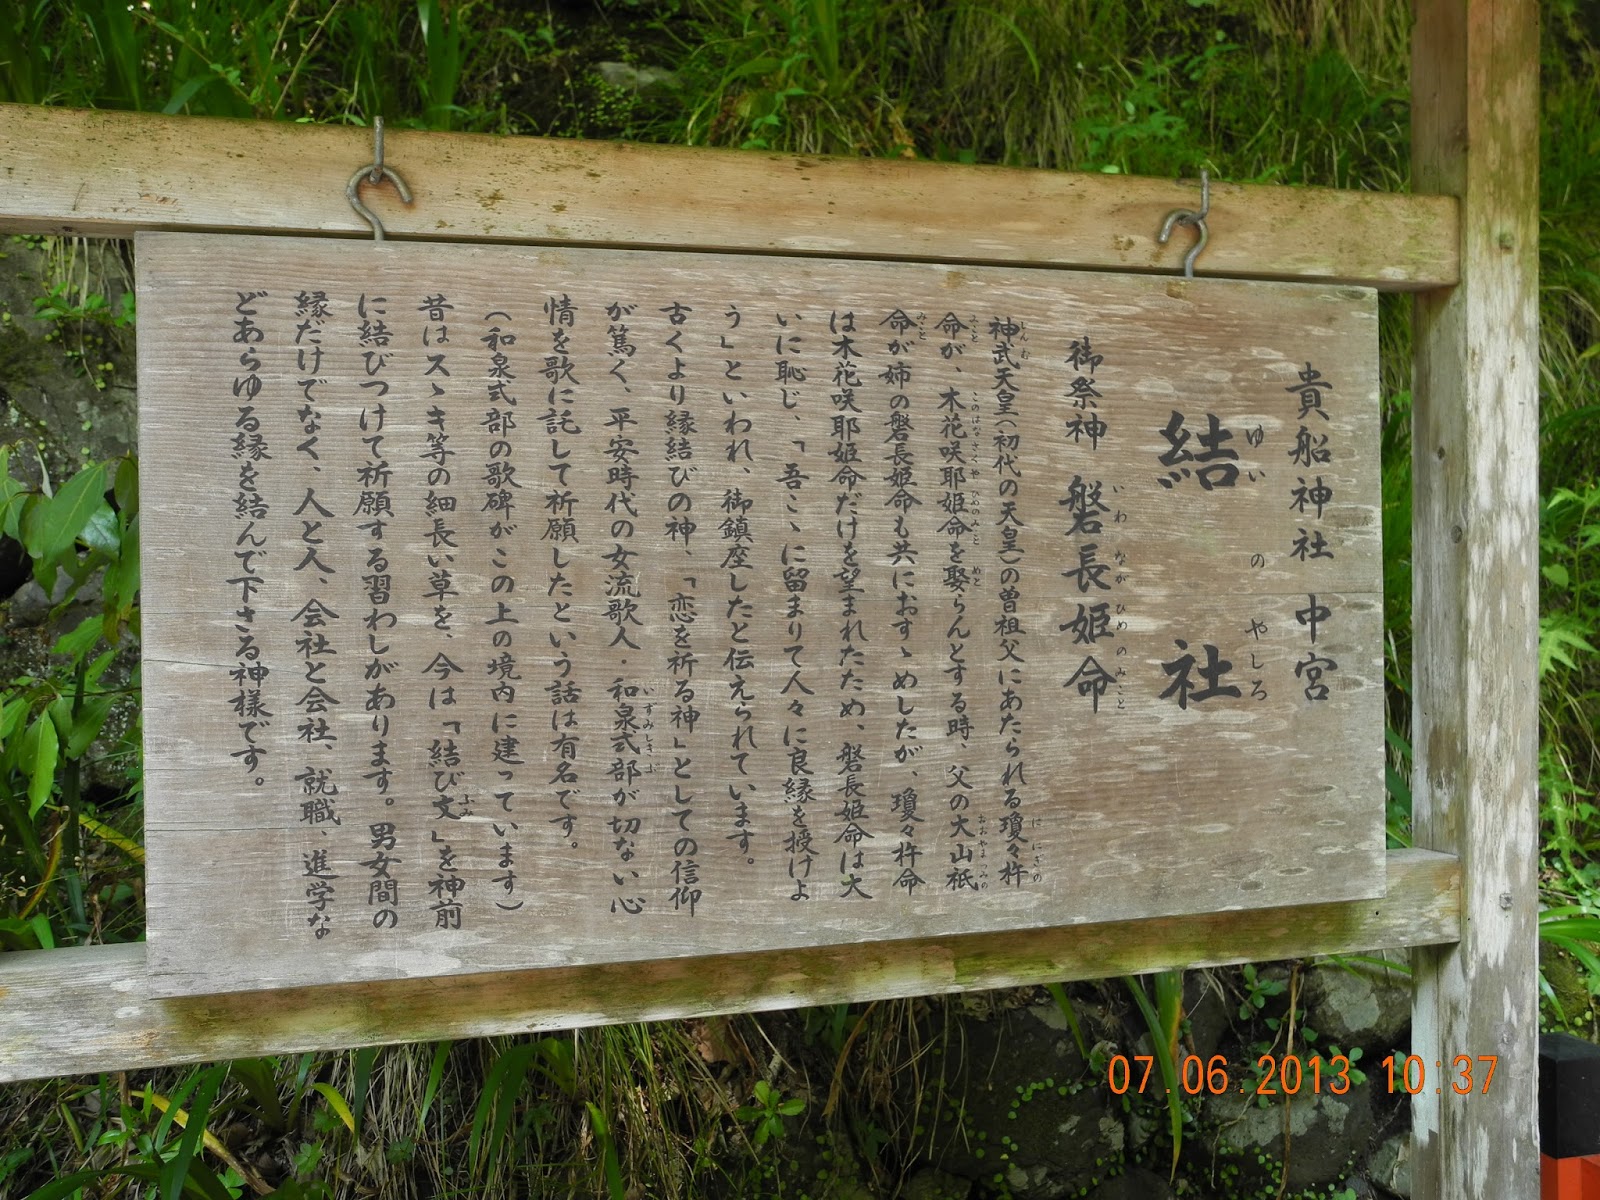 貴船神社 中宮
ゆい の やしろ
結 社
いわ なが ひめ のみこと
御祭神 磐長姫命
じんむ ににぎの
神武天皇(初代の天皇)の曽祖父にあたられる瓊々杵
みこと このはなさくや ひめのみこと めと おおやまつみの
命が、木花咲耶姫命を娶らんとする時、父の大山祇
みこと
命が姉の磐長姫命も共におすゝめしたが、瓊々杵命
は木花咲耶姫命だけを望まれたため、磐長姫命は大
いに恥じ、「吾こゝに留まりて人々に良縁を授けよ
う」といわれ、御鎮座したと伝えられています。
古くより縁結びの神、「恋を祈る神」としての信仰
いずみしきぶ
が篤く、平安時代の女流歌人・和泉式部が切ない心
情を歌に託して祈願したという話は有名です。
(和泉式部の歌碑がこの上の境内に建っています)
ふみ
昔はスゝキ等の細長い草を、今は「結び文」を神前
に結びつけて祈願する習わしがあります。男女間の
縁だけでなく、人と人、会社と会社、就職、進学な
どあらゆる縁を結んで下さる神様です。
07.06.2013 10:37